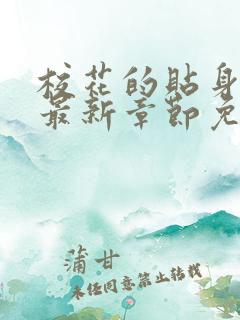 校花的贴身
最新章节免
蒲甘
未经同意禁止转载